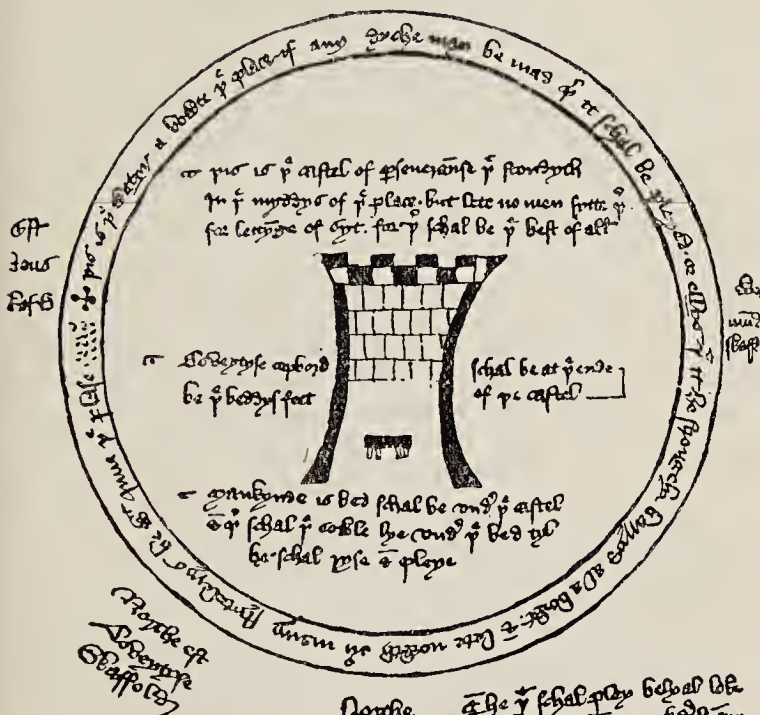 þis is þe watyr a bowte þe place if any dyche may be mad þer it schal be pleyed or ellys þat it be strongely barryd al a bowt & lete nowth ouer many stytelerys be wit Inne þe plase
þis is þe castel of perseueraunse þat stondyth
In þe myddys of þe place. but lete no men sytte þer
for lettynge of syt. for þer schal be þe best of all
Est
deus
skafold
Coveytyse copbord
be þe beddys feet
schal be at þe ende
of þe castel
Mankynde is bed schal be vndyr þe castel
& þer schal þe sowle lye vndyr þe bed tyl
he schal ryse & pleye
Northe est
Coveytyse
skaffold
Northe
& he þat schal pley belyal loke